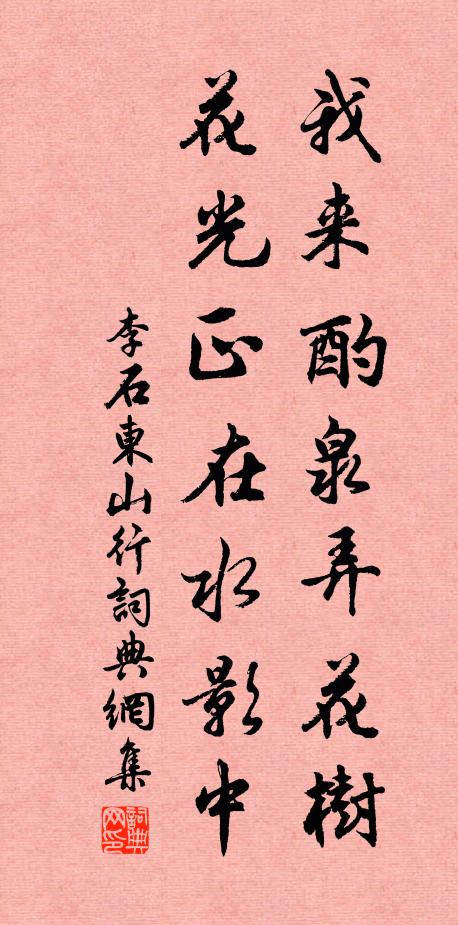 我来酌泉弄花樹
花光正在水影中
李石東山行詞典網集
詞典网印